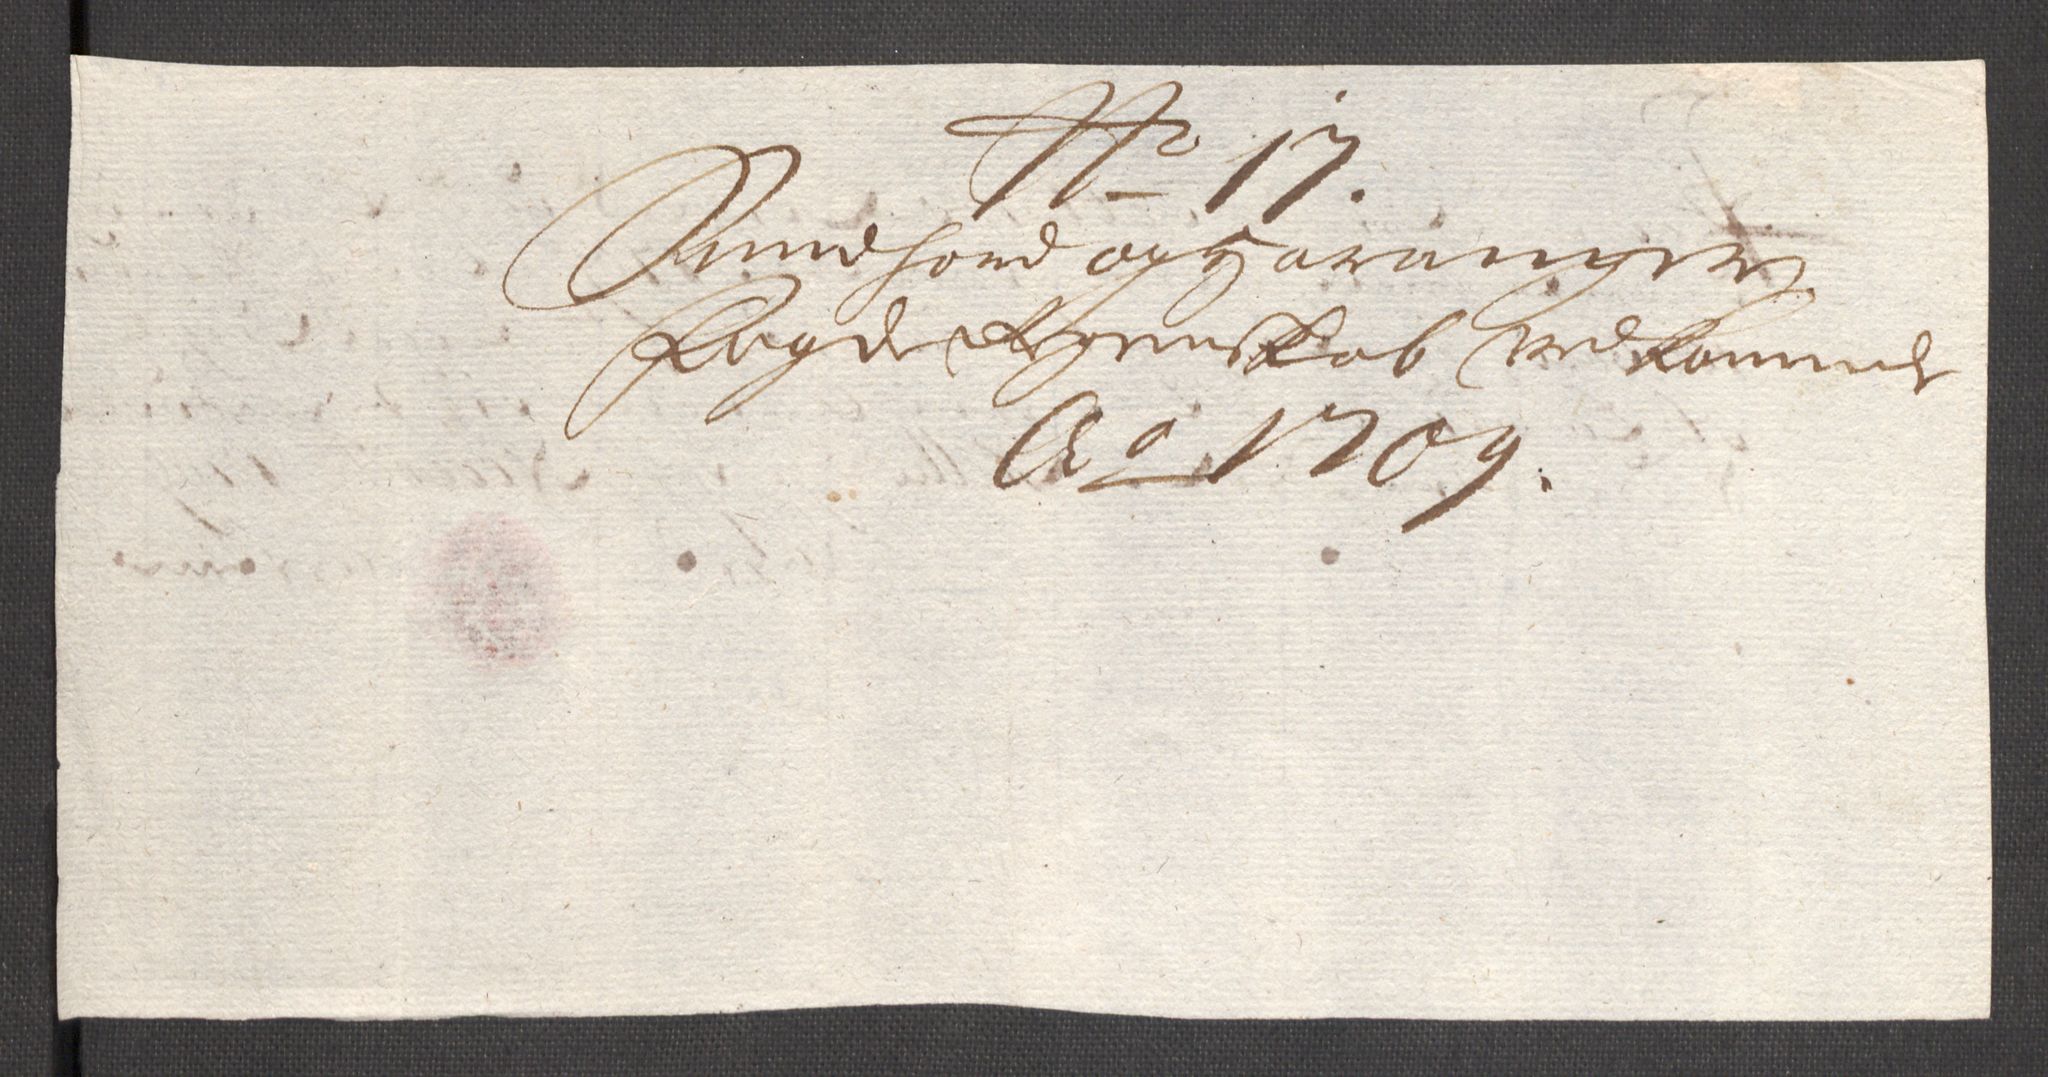 No 17.
Sundhord og Hardanger
Fogderj Regenskab Vedkommende
Ao 1709.